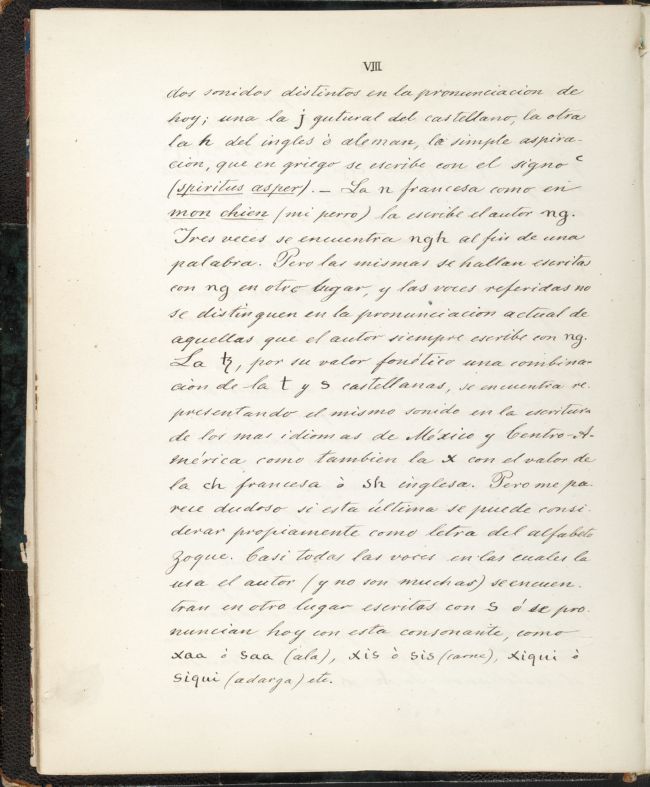 VIII
dos sonidos distintos en la pronunciacion de
hoy; una la j gutural del castellano, la otra
la h del ingles ò aleman, la simple aspira-
cion, que en griego se escribe con el signo ʿ
(spiritus asper). — La n francesa como en
mon chien (mi perro) la escribe el autor ng.
Tres veces se encuentra ngh al fin de una
palabra. Pero las mismas se hallan escritas
con ng en otro lugar, y las voces referidas no
se distinguen en la pronunciacion actual de
aquellas que el autor siempre escribe con ng.
La tz, por su valor fonético una combina-
cion de la t y s castellanas, se encuentra re-
presentando el mismo sonido en la escritura
de los mas idiomas de México y Centro-A-
mérica como tambien la x con el valor de
la ch francesa ò sh inglesa. Pero me pa-
rece dudoso si esta última se puede consi-
derar propiamente como letra del alfabeto
Zoque. Casi todas las voces en las cuales la
usa el autor (y no son muchas) se encuen-
tran en otro lugar escritas con s ó se pro-
nuncian hoy con esta consonante, como
xaa ò saa (ala), xis ò sis (carne), xiqui ò
siqui (adarga) etc.